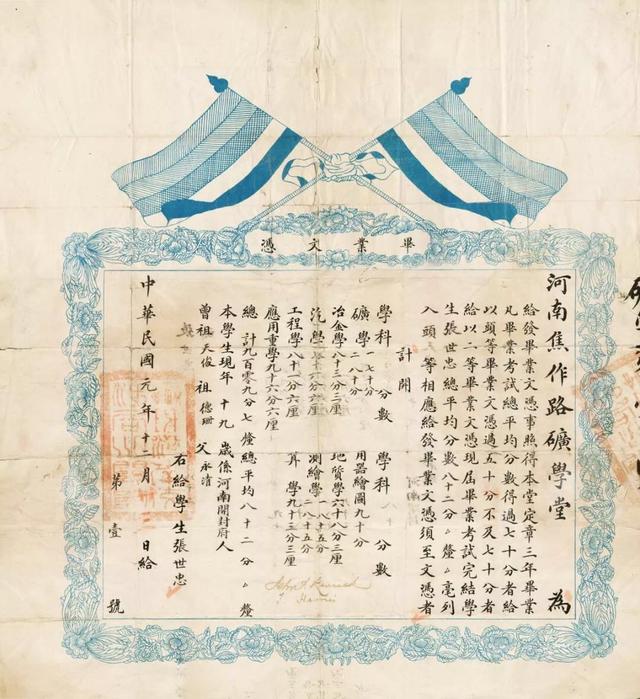 畢業文憑
河南焦作路礦學堂 為
給發畢業文憑事照得本堂定章三年畢業
凡畢業考試總平均分數得過七十分者給
以頭等畢業文憑過五十分不及七十分者
給以二等畢業文憑現屆畢業考試完結學
生張世忠總平均分數八十二分 釐 毫列
入頭等相應給發畢業文憑須至文憑者
計開
學科 分數 學科 分數
礦學 一 七十分 二 八十分 用器繪圖九十分
冶金學八十三分三厘 地質學六十八分三厘
汽學 分六厘 測繪學 一 八十五分 二 八十五分
工程學八十一分六厘 算學九十三分三厘
應用重學九十六分六厘
總計九百零九分七釐總平均八十二分 釐
本學生現年十九歲係河南開封府人
曾祖天俊 祖德 父永清
右給學生張世忠
中華民國元年十二月 日給
第壹號